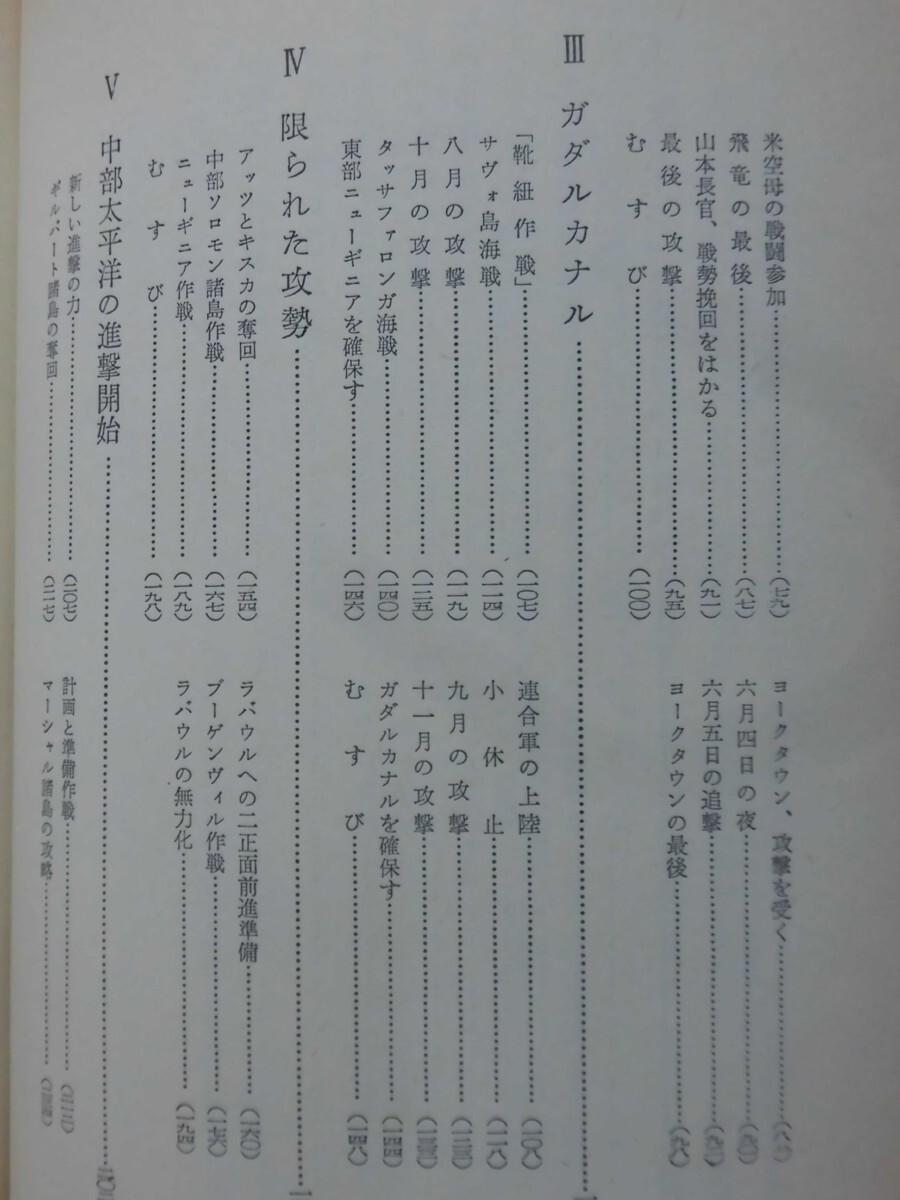 米空母の戦闘参加……………（七九）
ヨークタウン、攻撃を受く……………
飛竜の最後……………（八七）
六月四日の夜……………（九〇）
山本長官、戦勢挽回をはかる……………（九一）
六月五日の追撃……………
最後の攻撃……………（九五）
ヨークタウンの最後……………（九八）
むすび……………（一〇〇）
Ⅲ ガダルカナル……………
「靴紐作戦」……………（一〇七）
連合軍の上陸……………（一〇八）
サヴォ島海戦……………（一一四）
小休止……………（一一八）
八月の攻撃……………（一一九）
九月の攻撃……………（一二三）
十月の攻撃……………（一二五）
十一月の攻撃……………（一三三）
タッサファロンガ海戦……………（一四〇）
ガダルカナルを確保す……………（一四四）
東部ニューギニアを確保す……………（一四六）
むすび……………（一四八）
Ⅳ 限られた攻勢……………
アッツとキスカの奪回……………（一五四）
ラバウルへの二正面前進準備……………（一六〇）
中部ソロモン諸島作戦……………（一六七）
ブーゲンヴィル作戦……………（一七六）
ニューギニア作戦……………（一八九）
ラバウルの無力化……………（一九四）
むすび……………（一九八）
Ⅴ 中部太平洋の進撃開始……………
新しい進撃の力……………（二〇七）
計画と準備作戦……………
ギルバート諸島の奪回……………（二一七）
マーシャル諸島の攻略……………